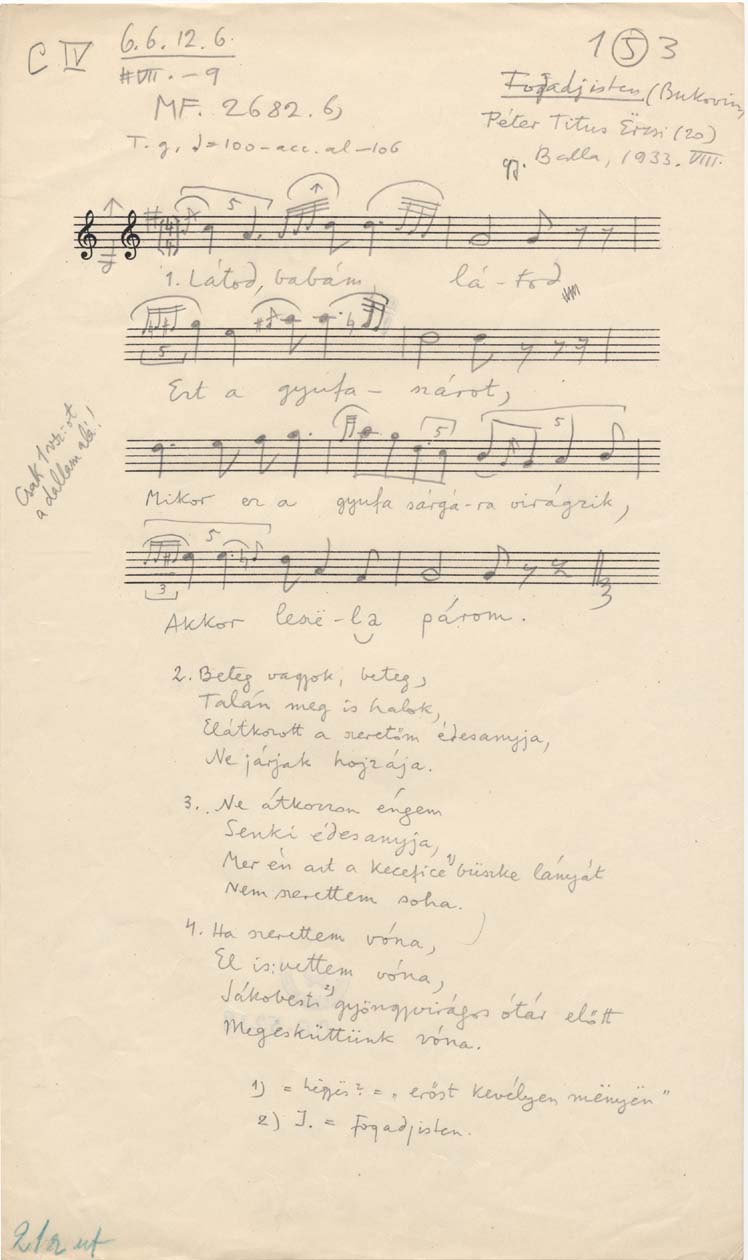 C IV
6. 6. 12. 6.
#VII. - 9
MF. 2682. b)
T. g. ♩=100-acc. al-106
1 5 3
Fogadjisten (Bukovina)
Péter Titus Ërzsi (20)
gy. Balla, 1933. VIII.
5
1. Látod, babám, lá-tod
5
Ezt a gyufa- szárot,
Csak 1 vsz.-ot
a dallam alá!
5
5
Mikor ez a gyufa sárgá-ra virágzik,
5
3
Akkor leszë-la párom.
2. Beteg vagyok, beteg,
Talán meg is halok,
Elátkozott a szeretőm édesanyja,
Ne járjak hojzája.
3. Ne átkozzon éngem
Senki édesanyja,
Mer én azt a kecefice 1) büszke lányát
Nem szerettem soha.
4. Ha szerettem vóna,
El is vettem vóna,
Jákobesti 2) gyöngyvirágos ótár előtt
Megesküttünk vóna.
1) = hëgyës? = „erőst kevélyen mënyën"
2) J. = Fogadjisten.